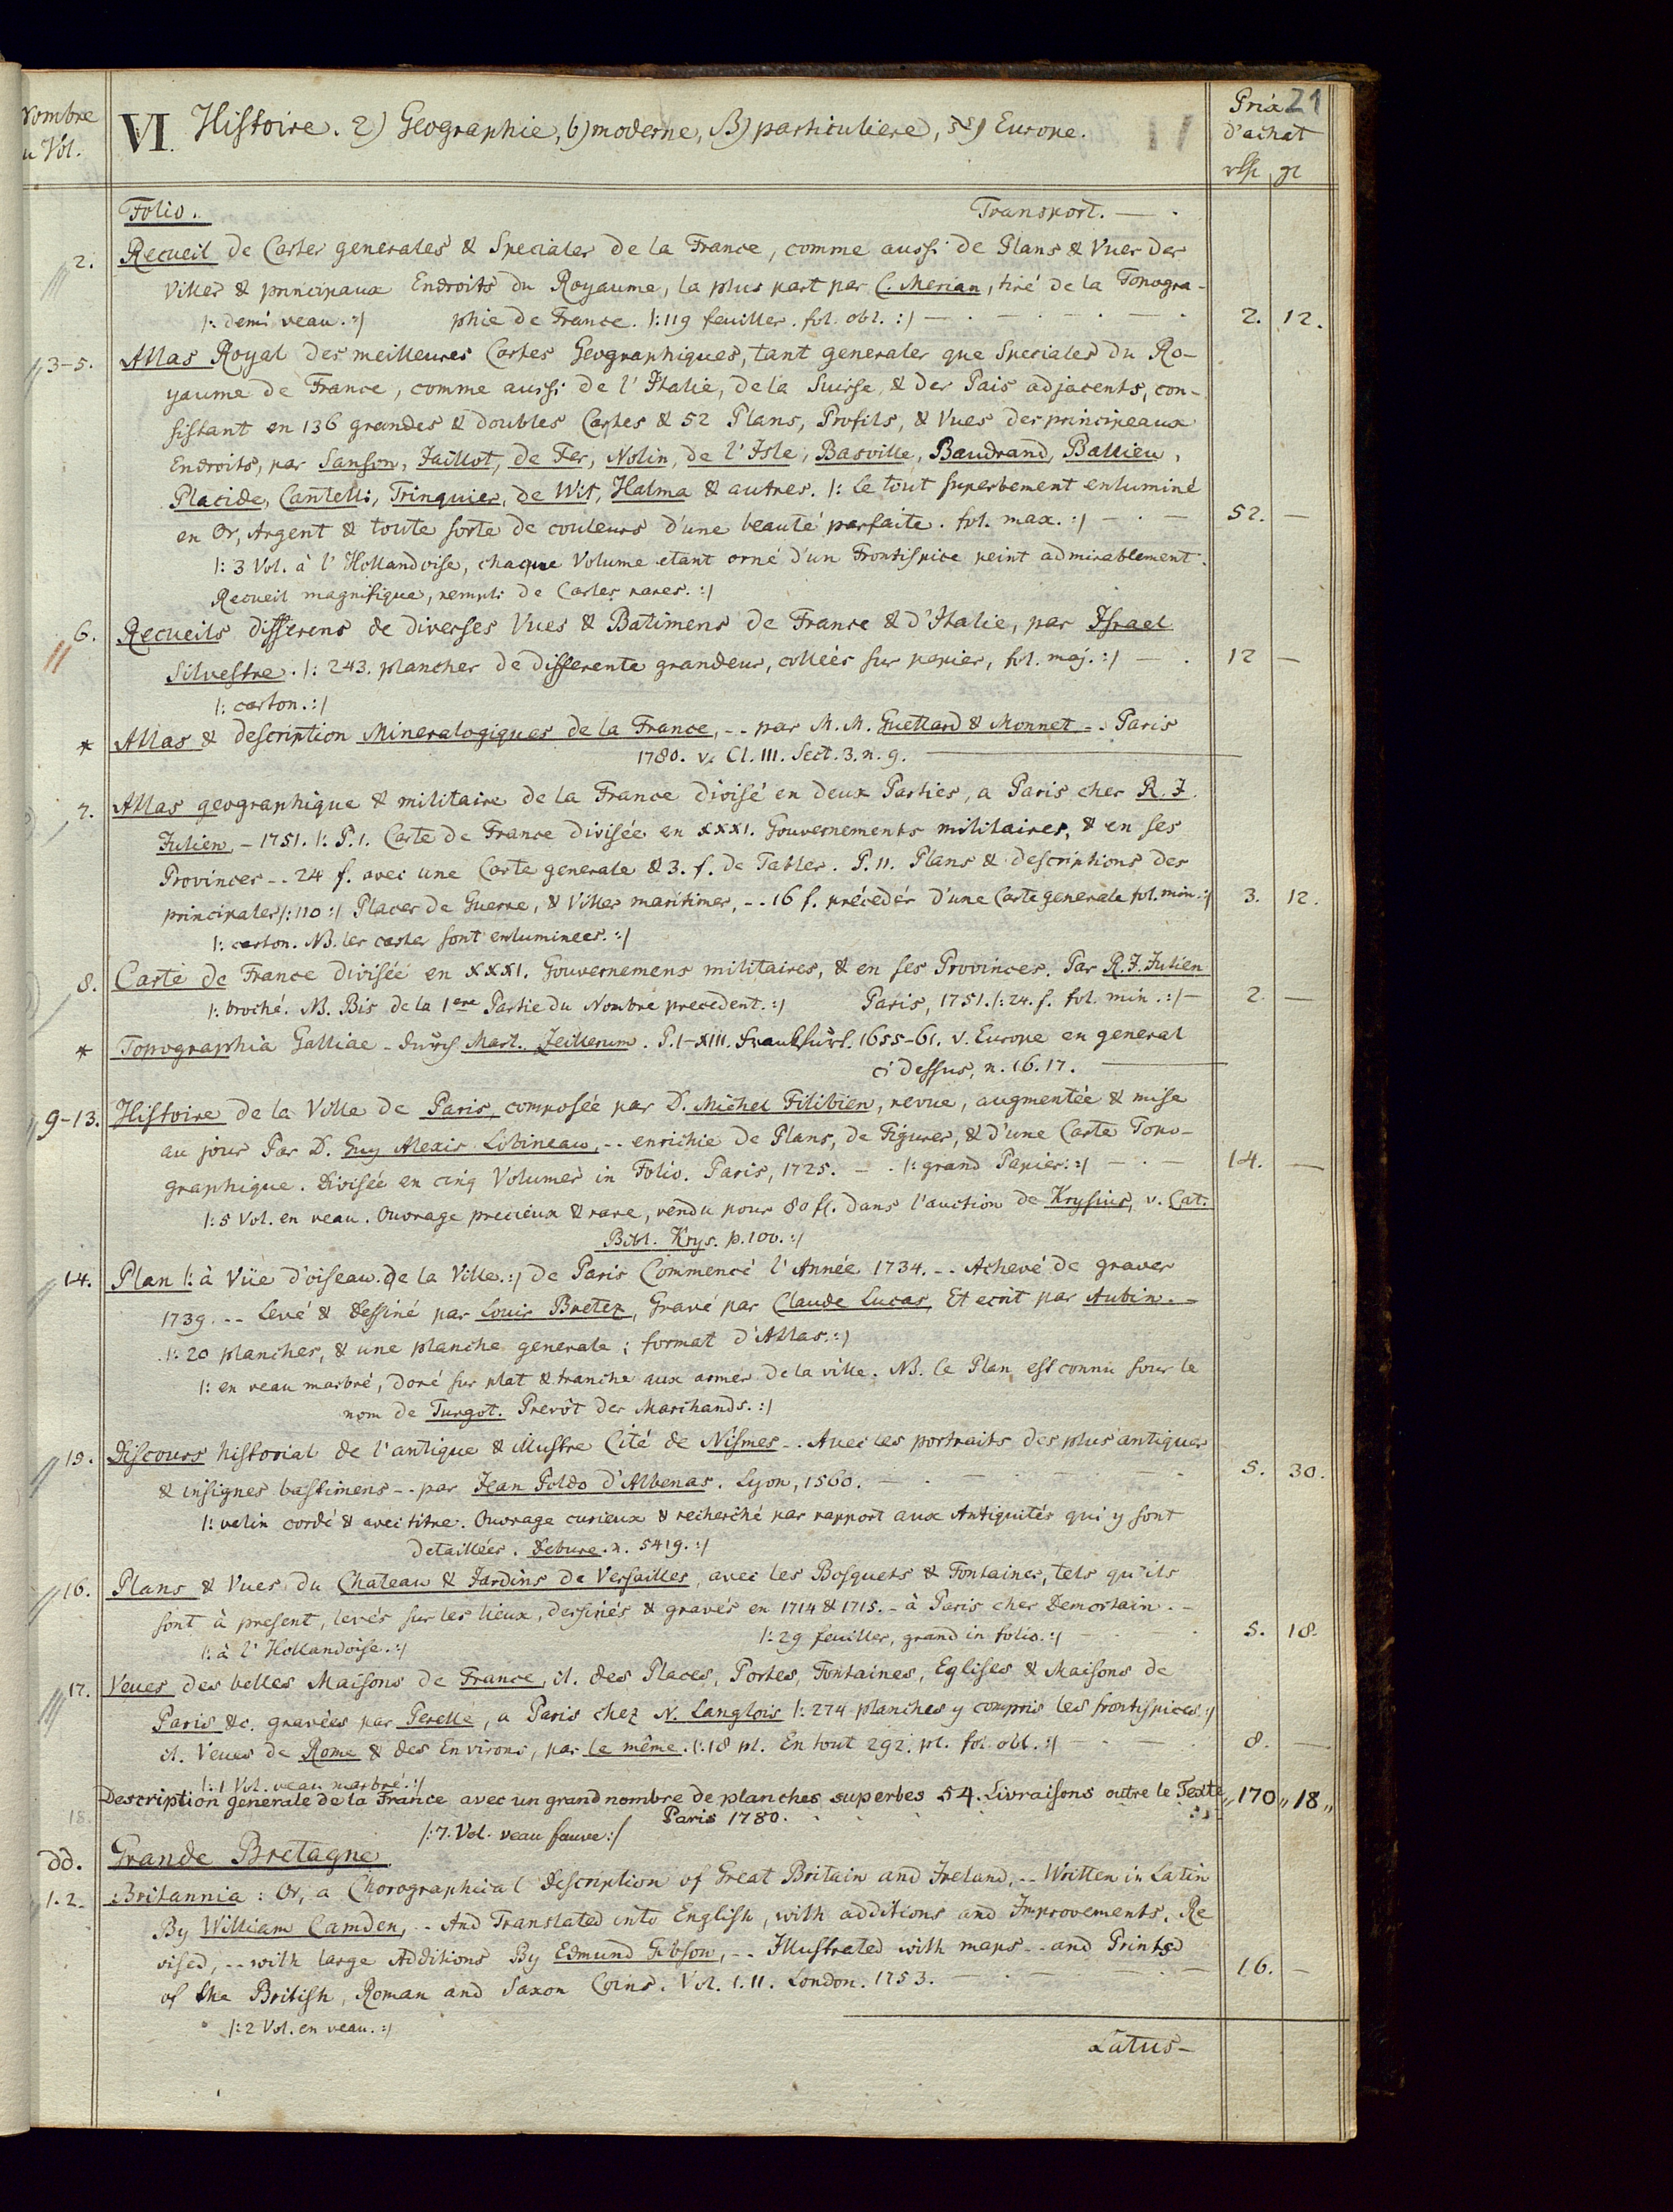 Nombre
u Vol.
VI. Histoire. 2) Geographie, b) moderne, β) particuliere, Europe.
Prix 21
d'achat
Folio. Transport. — .
2. Recueil de Cartes generales & Speciales de la France, comme aussi de Plans & Vues des
Villes & principaux Endroits du Royaume, la plus part par C. Merian, tiré de la Topogra-
|: demi veau. :| phie de France. |: 119 feuilles. fol. obl. :| — . — . — . — . 2. 12.
3-5. Atlas Royal des meilleures Cartes Geographiques, tant generales que Speciales du Ro-
yaume de France, comme aussi de l'Italie, de la Suisse & des Pais adjacents, con-
sistant en 136 grandes & doubles Cartes & 52 Plans, Profils, & Vues des principeaux
Endroits, par Sanson, Jaillot, de Fer, Nolin, de l'Isle, Basville, Baudrand, Ballieu,
Placide, Cantelli, Trinquier, de Wit, Halma & autres. |: le tout superbement enluminé
en Or, Argent & toute sorte de couleurs d'une beauté parfaite. fol. max. :| — . — 52. —
|: 3 Vol. à l'Hollandoise, chaque Volume etant orné d'un Frontispice peint admirablement.
Recueil magnifique, rempli de Cartes rares. :|
6. Recueils differens de diverses Vues & Batimens de France & d'Italie, par Israel
Silvestre. |: 243. planches de differente grandeur, collées sur papier, fol. maj. :| — . 12 —
|: carton. :|
* Atlas & description Mineralogiques de la France, -- par M. M. Guettard & Monnet -- Paris
1780. v. Cl. III. Sect. 3. n. 9.
7. Atlas geographique & militaire de la France divisé en deux Parties, a Paris ches R. J.
Julien, - 1751. |: P. 1. Carte de France divisée en XXXI. Gouvernements militaires, & en ses
Provinces -- 24 f. avec une Carte generale & 3. f. de Tables. P. 11. Plans & descriptions des
principales |: 110 :| Places de Guerre, & Villes maritimes, -- 16 f. précedés d'une Carte generale fol. min. :| 3. 12.
|: carton. NB. les cartes sont enluminees. :|
8. Carte de France divisée en XXXI. Gouvernemens militaires, & en ses Provinces. Par R. J. Julien
|: broché. NB. Bis de la 1ere Partie du Nombre precedent. :| Paris, 1751. |: 24. f. fol. min. :| — 2. —
* Topographia Galliae - durch Mart. Zeillerum. P. I-XIII. Frankfurt. 1655-61. v. Europe en general
ci dessus, n. 16. 17.
9-13. Histoire de la Ville de Paris, composée par D. Michel Filibien, revue, augmentée & mise
au jour Par D. Guy Alexis Lobineau, -- enrichie de Plans, de Figures, & d'une Carte Topo-
graphique. Divisée en cinq Volumes in Folio. Paris, 1725. — . |: grand Papier. :| — . — 14. —
|: 5 Vol. en veau. Ouvrage precieux & rare, vendu pour 80 fl. dans l'auction de Krysius, v. Cat.
Bibl. Krys. p. 100. :|
14. Plan |: à Vüe d'oiseau de la Ville. :| de Paris Commencé l'Année 1734. -- Achevé de graver
1739. -- Levé & dessiné par Louis Bretez, Gravé par Claude Lucas, Et ecrit par Aubin. -
|: 20 planches, & une planche generale; format d'Atlas. :|
|: en veau marbré, doré sur plat & tranche aux armes de la ville. NB. le Plan est connu sous le
nom de Turgot. Prevôt des Marchands. :|
15. Discours historial de l'antique & illustre Cité de Nismes -- Avec les portraits des plus antiques
& insignes bastimens -- par Jean Poldo d'Albenas. Lyon, 1560. — . — . — . — . 5. 30.
|: velin cordé & avec titre. Ouvrage curieux & recherché par rapport aux Antiquités qui y sont
detaillées. Debure. n. 5419. :|
16. Plans & Vues du Chateau & Jardins de Versailles, avec les Bosquets & Fontaines, tels qu'ils
sont à present, levés sur les lieux, dessinés & gravés en 1714 & 1715. - à Paris ches Demortain. -
|: à l'Hollandoise. :| |: 29 feuilles, grand in folio. :| — . — . 5. 18.
17. Veues des belles Maisons de France, it. des Places, Portes, Fontaines, Eglises & Maisons de
Paris &c. gravées par Perelle, a Paris chez N. Langlois |: 274 planches y compris les frontispices. :|
it. Veues de Rome & des Environs, par le même. |: 18 pl. En tout 292. pl. fol. obl. :| . — . 8. —
|: 1 Vol. veau marbré. :|
18. Description generale de la France avec un grand nombre de planches superbes 54. Livraisons outre le Texte „ 170 „ 18 „
Paris 1780.
|: 7. Vol. veau fauve :|
dd. Grande Bretagne.
1. 2. Britannia: Or, a Chorographical Description of Great Britain and Ireland, -- Written in Latin
By William Camden, -- And Translated into English, with additions and Improvements. Re
vised, -- with large Additions By Edmund Gibson, -- Illustrated with maps -- and Prints
of the British, Roman and Saxon Coins. Vol. I. II. London. 1753. — . — . — 16. —
|: 2 Vol. en veau. :|
Latus —